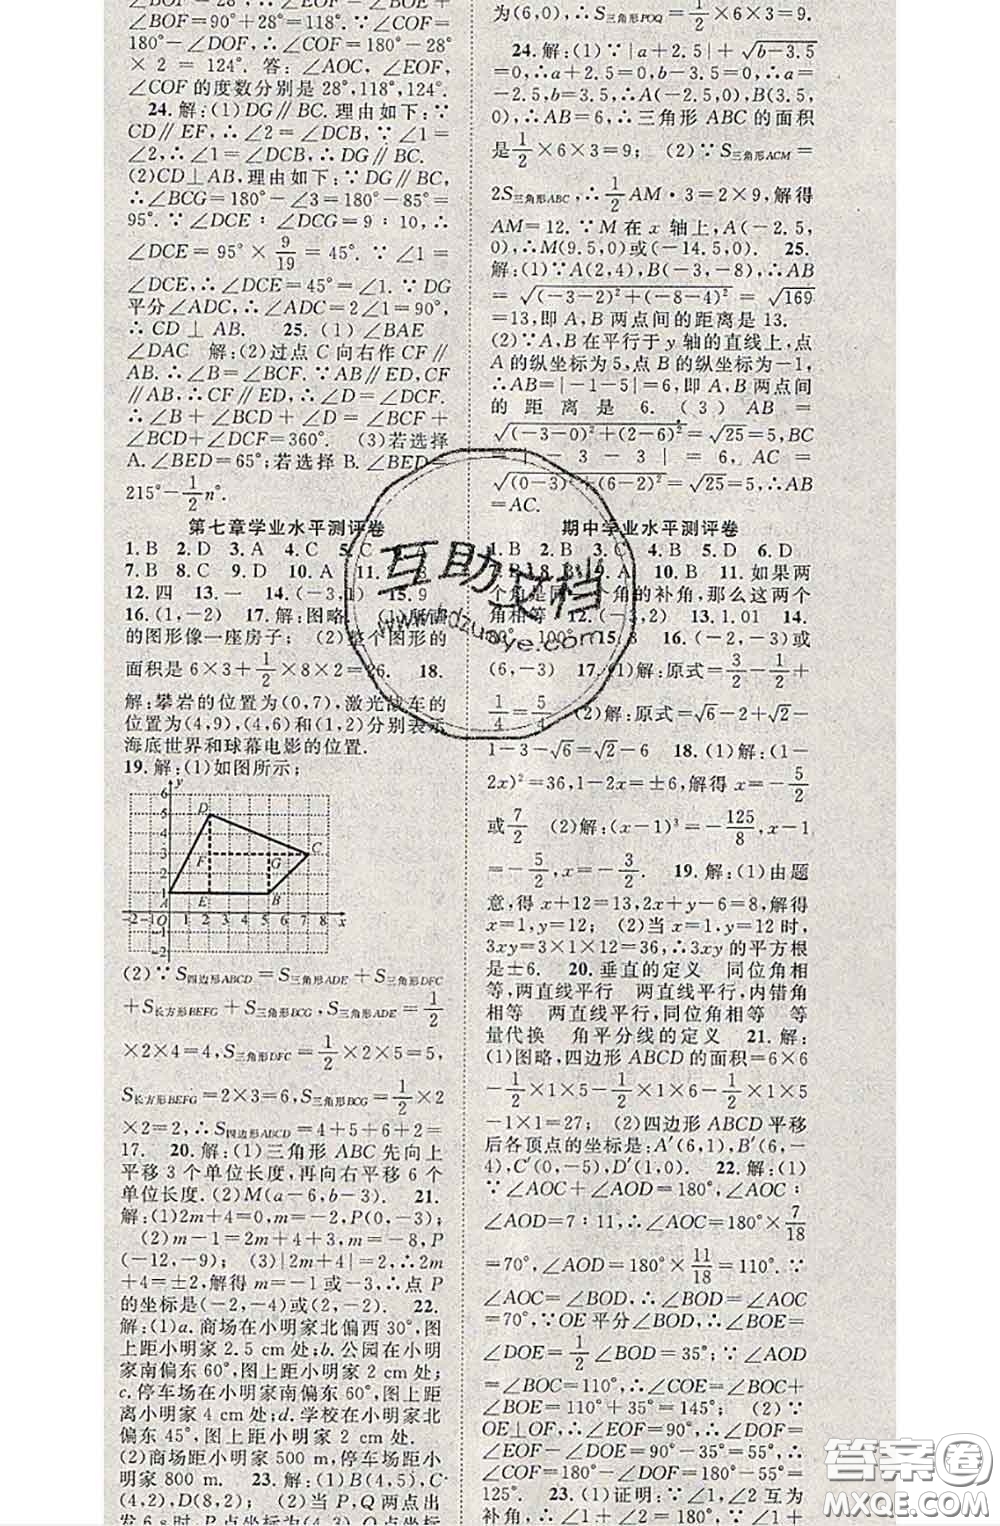 ∠BOF=28°,∴∠EOF=∠BOE+
∠BOF=90°+28°=118°.∠COF=
180°-∠DOF,∴∠COF=180°-28°
×2=124°. 答:∠AOC,∠EOF,
∠COF的度数分别是28°,118°,124°.
24.解:(1)DG∥BC.理由如下:∵
CD∥EF,∴∠2=∠DCB,∵∠1=
∠2,∴∠1=∠DCB,∴DG∥BC.
(2)CD⊥AB,理由如下:∵DG∥BC,
∴∠BCG=180°-∠3=180°-85°=
95°.∵∠DCE:∠DCG=9:10,∴
∠DCE=95°×9/19=45°.∵∠1=
∠DCE,∴∠DCE=45°=∠1.∵DG
平分∠ADC,∴∠ADC=2∠1=90°,
∴CD⊥AB. 25.(1)∠BAE
∠DAC 解:(2)过点C向右作CF∥
AB,∴∠B=∠BCF.∵AB∥ED,CF
∥AB,∴CF∥ED,∴∠D=∠DCF.
∴∠B+∠BCD+∠D=∠BCF+
∠BCD+∠DCF=360°. (3)若选择
A.∠BED=65°;若选择B.∠BED=
215°-1/2n°.
第七章学业水平测评卷
1.B 2.D 3.A 4.C 5.C
7.B 8.C 9.D 10.A 11.B
12.四 13.一 14.(-3,1) 15.9
16.(-1,2) 17.解:图略 (1)所
的图形像一座房子; (2)整个图形的
面积是6×3+1/2×8×2=26. 18.
解:攀岩的位置为(0,7),激光战车的
位置为(4,9),(4,6)和(1,2)分别表示
海底世界和球幕电影的位置.
19.解:(1)如图所示;
(2)∵S四边形ABCD=S三角形ADE+S三角形DFC
+S长方形BEFG+S三角形BCG,S三角形ADE=1/2
×2×4=4,S三角形DFC=1/2×2×5=5,
S长方形BEFG=2×3=6,S三角形BCG=1/2×2
×2=2,∴S四边形ABCD=4+5+6+2=
17. 20.解:(1)三角形ABC先向上
平移3个单位长度,再向右平移6个
单位长度.(2)M(a-6,b-3). 21.
解:(1)2m+4=0,m=-2,P(0,-3);
(2)m-1=2m+4+3,m=-8,P
(-12,-9); (3)|2m+4|=2,∴2m
+4=±2,解得m=-1或-3,∴点P
的坐标是(-2,-4)或(2,-2). 22.
解:(1)a.商场在小明家北偏西30°,图
上距小明家2.5 cm处;b.公园在小明
家南偏东60°,图上距小明家2 cm处;
c.停车场在小明家南偏东60°,图上距
小明家4 cm处;d.学校在小明家北
偏东45°,图上距小明家2 cm处.
(2)商场距小明家500 m,停车场距
小明家800 m. 23.解:(1)B(4,5),C
(4,2),D(8,2); (2)当P,Q两点出
发6 s时,P点坐标为(4,3),Q点坐标
为(6,0),∴S三角形POQ=1/2×6×3=9.
24.解:(1)∵|a+2.5|+√(b-3.5)
=0,∴a+2.5=0,b-3.5=0,∴a=
-2.5,b=3.5,∴A(-2.5,0),B(3.5,
0),∴AB=6,∴三角形ABC的面积
是1/2×6×3=9; (2)∵S三角形ACM=
2S三角形ABC,∴1/2AM·3=2×9,解得
AM=12.∵M在x轴上,A(-2.5,
0),∴M(9.5,0)或(-14.5,0). 25.
解:(1)∵A(2,4),B(-3,-8),∴AB
=√((-3-2)²+(-8-4)²)=√169
=13,即A,B两点间的距离是13.
(2)∵A,B在平行于y轴的直线上,点
A的纵坐标为5,点B的纵坐标为-1,
∴AB=|-1-5|=6,即A,B两点间
的距离是6. (3)AB=
√((-3-0)²+(2-6)²)=√25=5,BC
=|-3-3|=6,AC=
√((0-3)²+(6-2)²)=√25=5,∴AB
=AC.
期中学业水平测评卷
1.B 2.B 3.C 4.B 5.D 6.D
9.A 10.B 11.如果两
个角是同一个角的补角,那么这两个
角相等 12.(-4,6) 13.1.01 14.
80° 100° 15.8 16.(-2,-3)或
(6,-3) 17.(1)解:原式=3/2-1/2+
1/4=5/4. (2)解:原式=√6-2+√2-
1-3-√6=√2-6 18.(1)解:(1-
2x)²=36,1-2x=±6,解得x=-5/2
或7/2 (2)解:(x-1)³=-125/8,x-1
=-5/2,x=-3/2. 19.解:(1)由题
意,得x+12=13,2x+y-6=8,解得
x=1,y=12; (2)当x=1,y=12时,
3xy=3×1×12=36,∴3xy的平方根
是±6. 20.垂直的定义 同位角相
等,两直线平行 两直线平行,内错角
相等 两直线平行,同位角相等 等
量代换 角平分线的定义 21.解:
(1)图略,四边形ABCD的面积=6×6
-1/2×1×5-1/2×1×5-1/2×1×5
-1/2×1×1=27; (2)四边形ABCD平移
后各顶点的坐标是:A′(6,1),B′(6,-
4),C′(0,-5),D′(1,0). 22.解:(1)
∵∠AOC+∠AOD=180°,∠AOC:
∠AOD=7:11,∴∠AOC=180°×7/18
=70°,∠AOD=180°×11/18=110°.∵
∠AOC=∠BOD,∴∠BOD=∠AOC=
70°.∵OE平分∠BOD,∴∠BOE=
∠DOE=1/2∠BOD=35°;∵∠AOD=
∠BOC=110°,∴∠COE=∠BOC+
∠BOE=110°+35°=145°; (2)∵
OE⊥OF,∴∠EOF=90°,∴∠DOF=
∠EOF-∠DOE=90°-35°=55°,∴
∠COF=180°-∠DOF=180°-55°=
125°. 23.(1)证明:∵∠1,∠2互为
补角,∴∠1+∠2=180°,∴AB∥
互助文档
答案圈
MXQE.COM